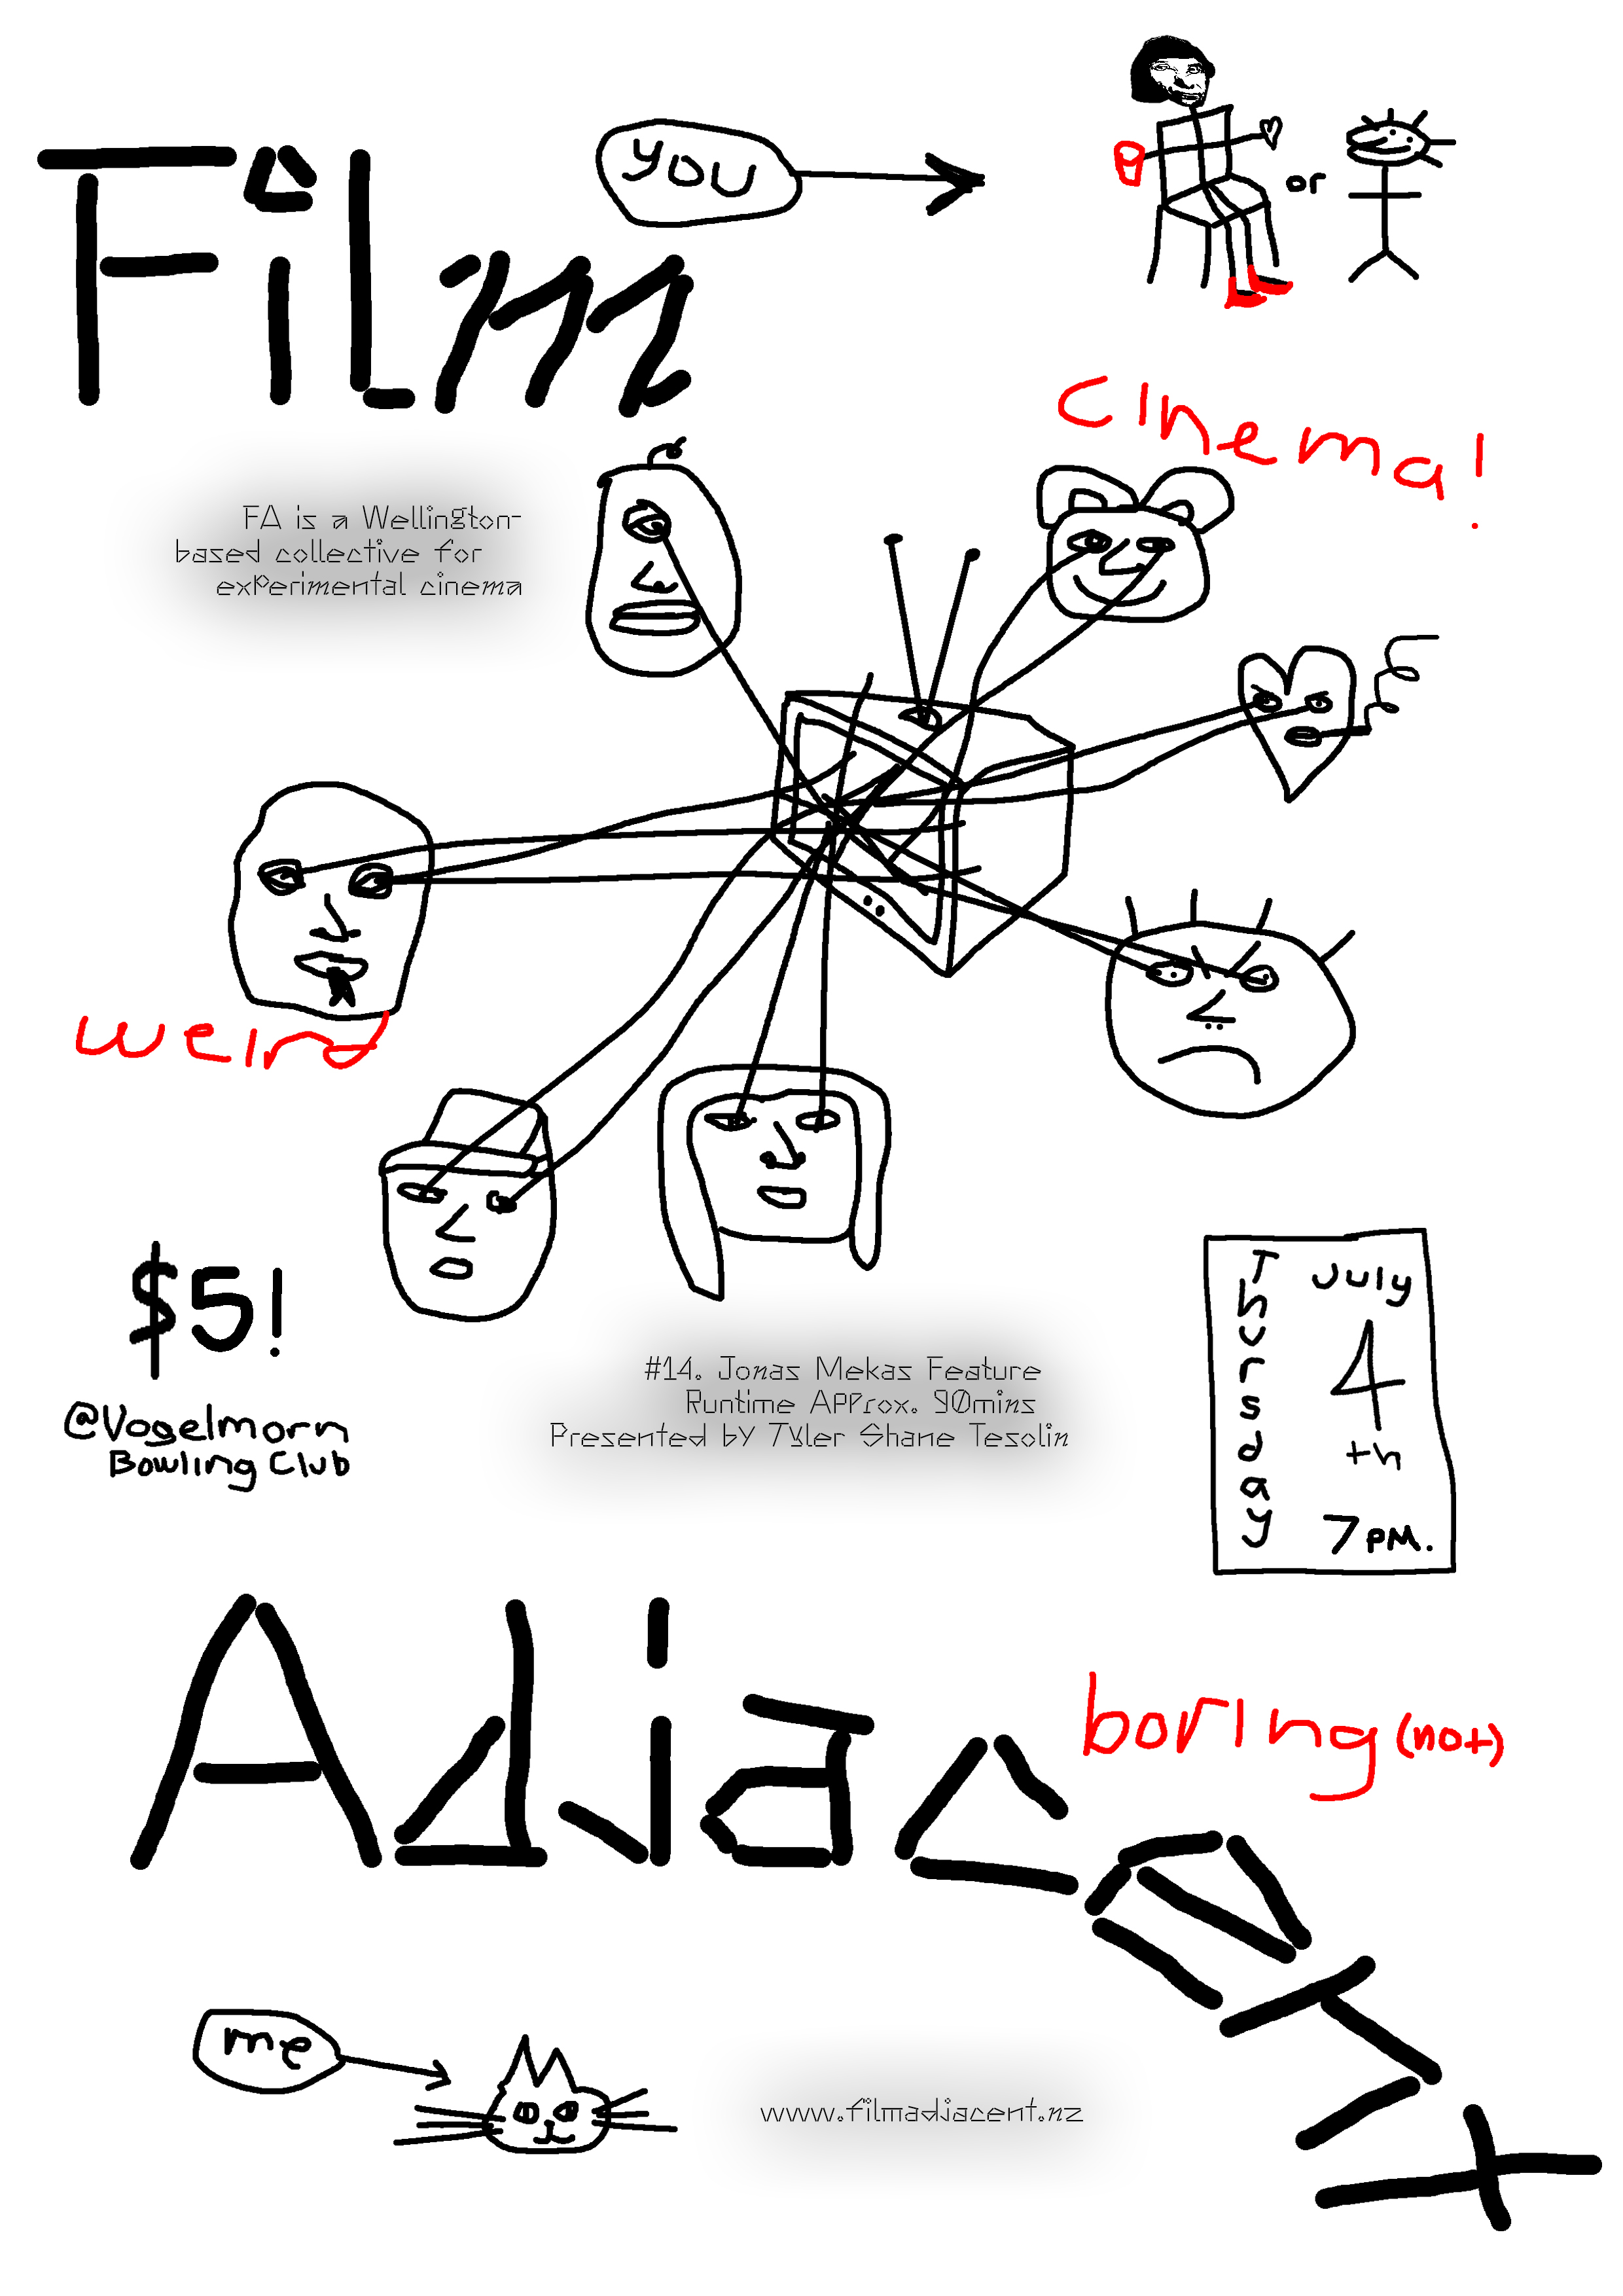 Film
you
or
cinema!
FA is a Wellington-
based collective for
experimental cinema
weird
$5!
@Vogelmorn
Bowling Club
#14. Jonas Mekas Feature
Runtime Approx. 90mins
Presented by Tyler Shane Tesolin
Thursday
July
4
th
7 PM.
Adjacent
boring (not)
me
www.filmadjacent.nz